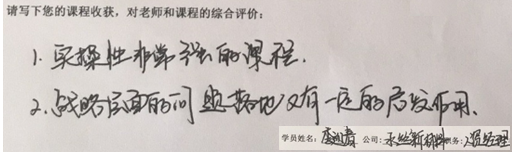 请写下您的课程收获，对老师和课程的综合评价：
1. 实操性非常强的课程.
2. 战略层面的问题落地又有一定的启发作用.
学员姓名： 公司： 职务： 经理